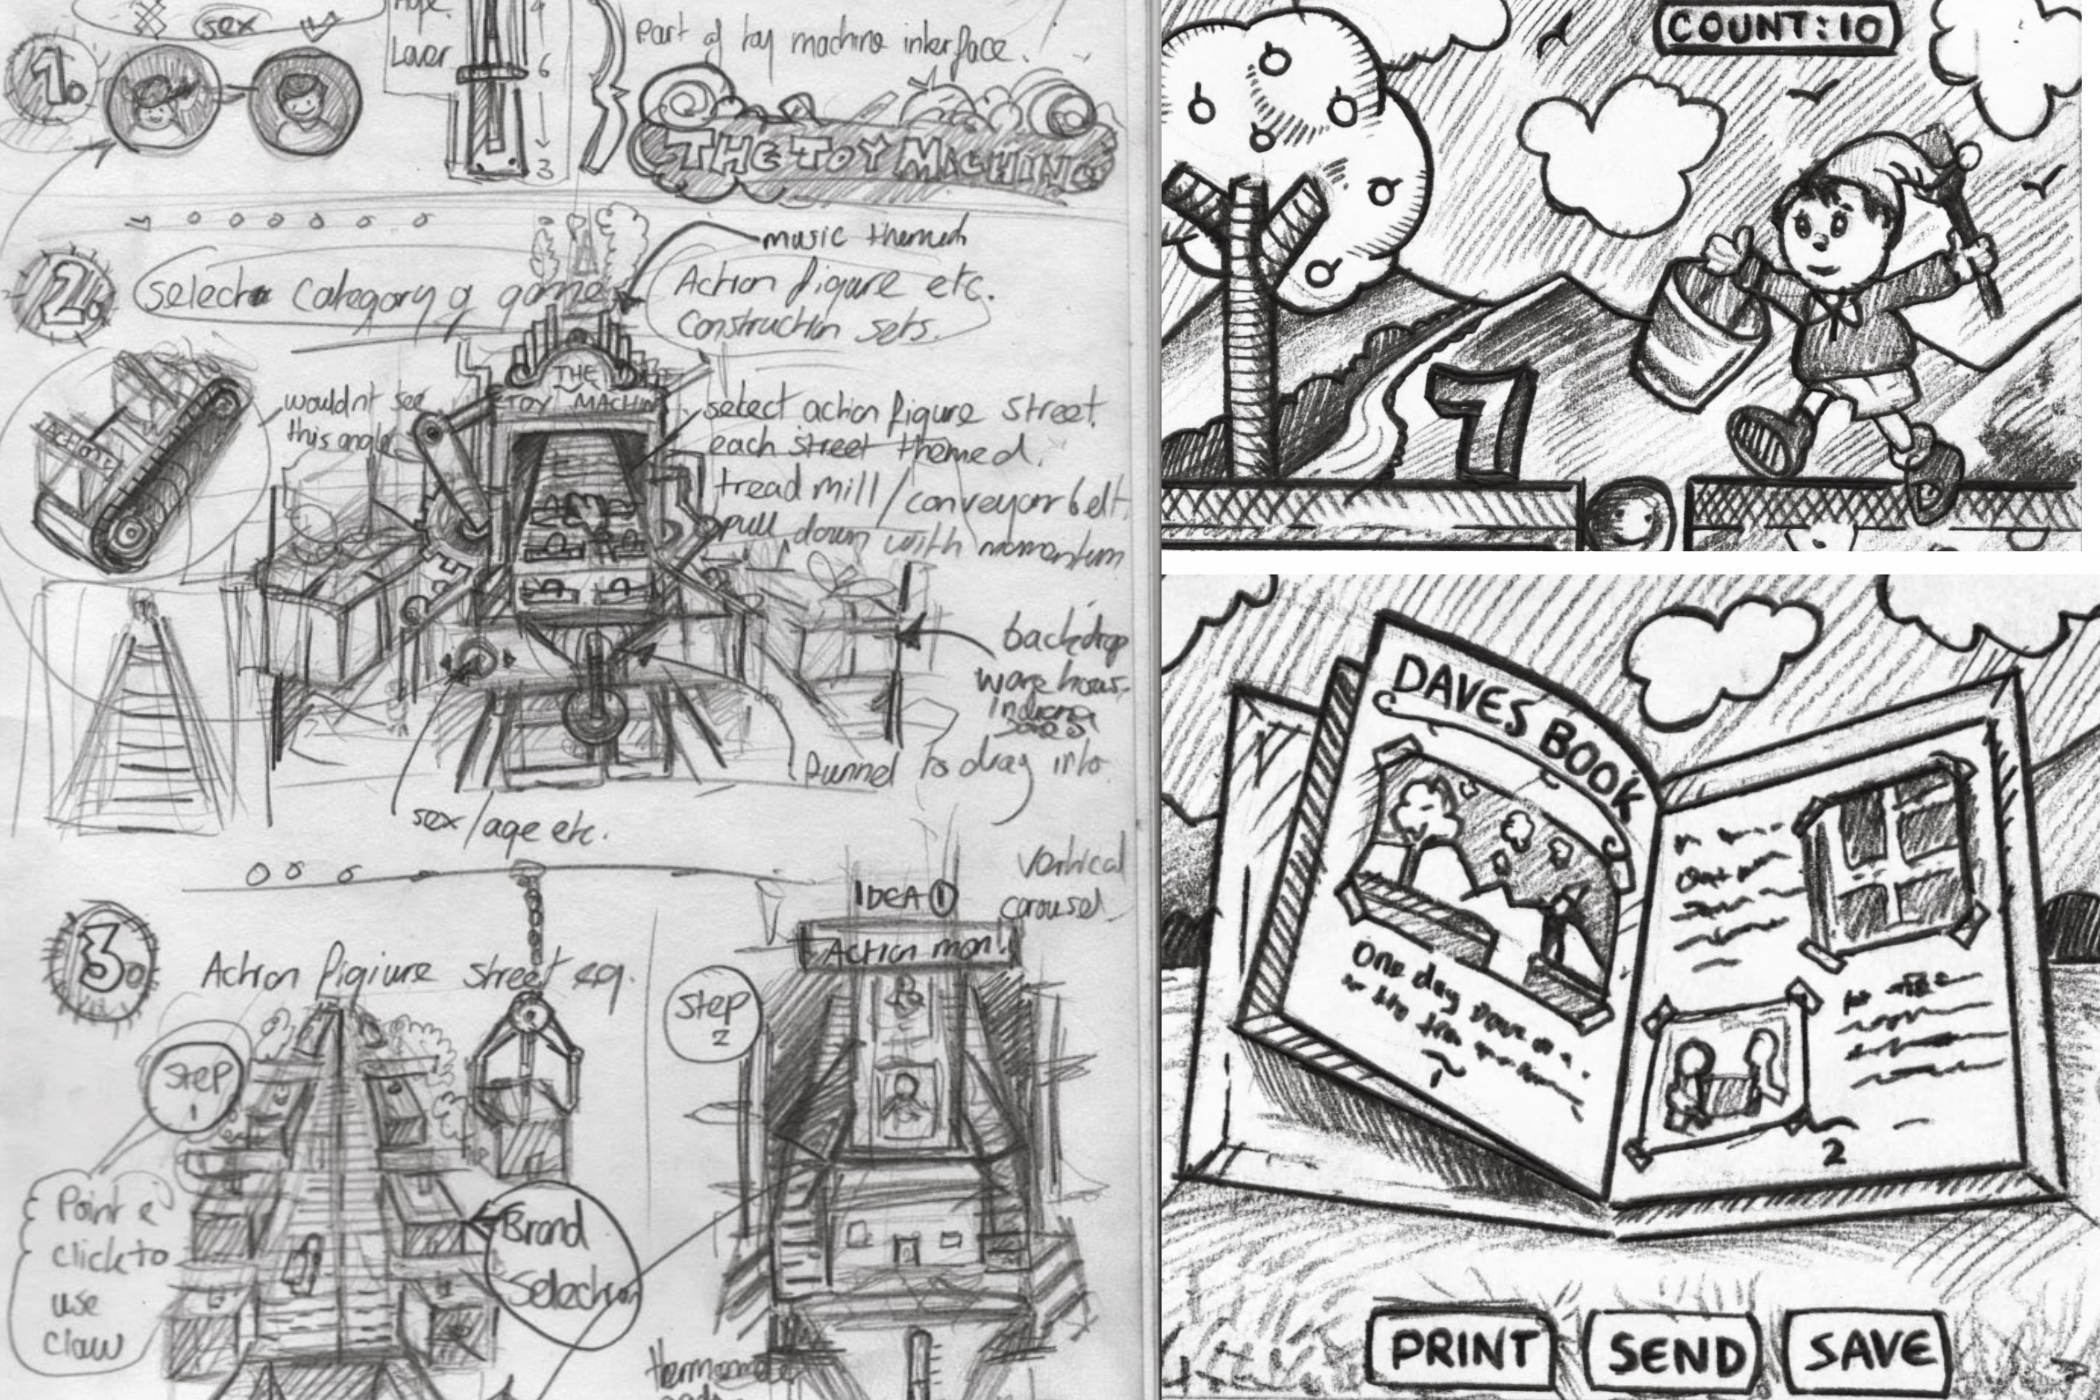 sex
Lever
9
6
3
Part of toy machine interface.
1.
THE TOY MACHINE
music themed
2.
Select a category of game
Action figure etc.
Construction sets.
THE
TOY MACHINE
wouldnt see
this angle
ACTION
select action figure street.
each street themed.
tread mill / conveyor belt.
pull down with momentum
backdrop
warehouse
Indiana
Jones
funnel to drag into.
sex/age etc.
Vertical
carousel
IDEA 1
3.
Action figiure street eg.
Action man.
Step
2
Step
1
Point &
click to
use
claw
Brand
Selection
COUNT:10
7
DAVES BOOK
One day Dave
1
2
PRINT
SEND
SAVE